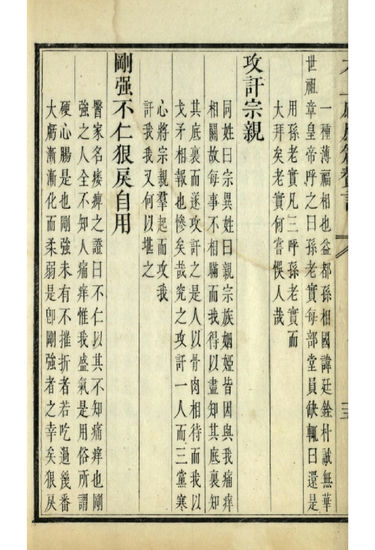 一種薄福相也益都孫相國諱廷銓朴誠無華
世祖章皇帝呼之曰孫老實每部堂員缺輒曰還是
用孫老實凡三呼孫老實而
大拜矣老實何嘗悞人哉
攻訐宗親
同姓曰宗異姓曰親宗族姻婭皆因與我痛痒
相關故每事不相瞞而我得以盡知其底裏知
其底裏而遂攻訐之是人以骨肉相待而我以
戈矛相報也慘矣哉究之攻訐一人而三黨寒
心將宗親羣起而攻我
訐我我又何以堪之
剛强不仁狠戾自用
醫家名痿痺之證曰不仁以其不知痛痒也剛
強之人全不知人痛痒惟我盛氣是用俗所謂
硬心腸是也剛強未有不摧折者若吃過後番
大虧漸漸化而柔弱是卽剛強者之幸矣狠戾